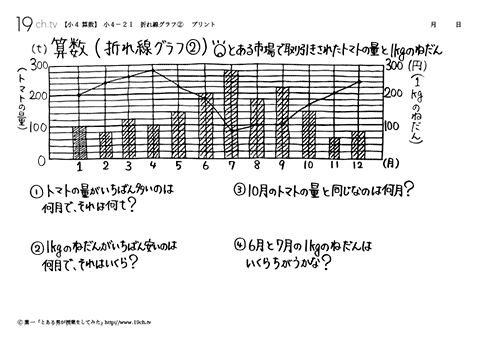 19ch.tv 【小4算数】 小4－21 折れ線グラフ② プリント 月 日
(t) 算数(折れ線グラフ②) とある市場で取り引きされたトマトの量と1kgのねだん
300 300(円)
200 200
100 100
0
(トマトの量)
(1kgのねだん)
1 2 3 4 5 6 7 8 9 10 11 12 (月)
①トマトの量がいちばん多いのは
何月で、それは何t?
②1kgのねだんがいちばん安いのは
何月で、それはいくら?
③10月のトマトの量と同じなのは何月?
④6月と7月の1kgのねだんは
いくらちがうかな?
Ⓒ葉一「とある男が授業をしてみた」http://www.19ch.tv